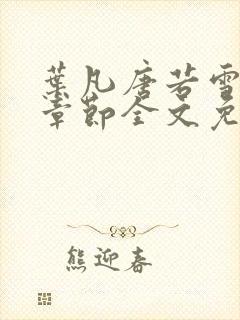 葉凡唐若雪
章節全文免
熊迎春